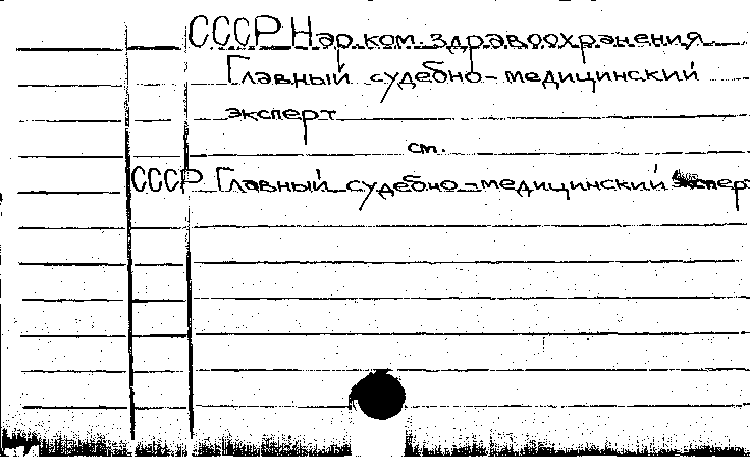 СССР Нар.ком.здравоохранения.
Главный судебно-медицинский
эксперт
см.
СССР Главный судебно-медицинский экспер